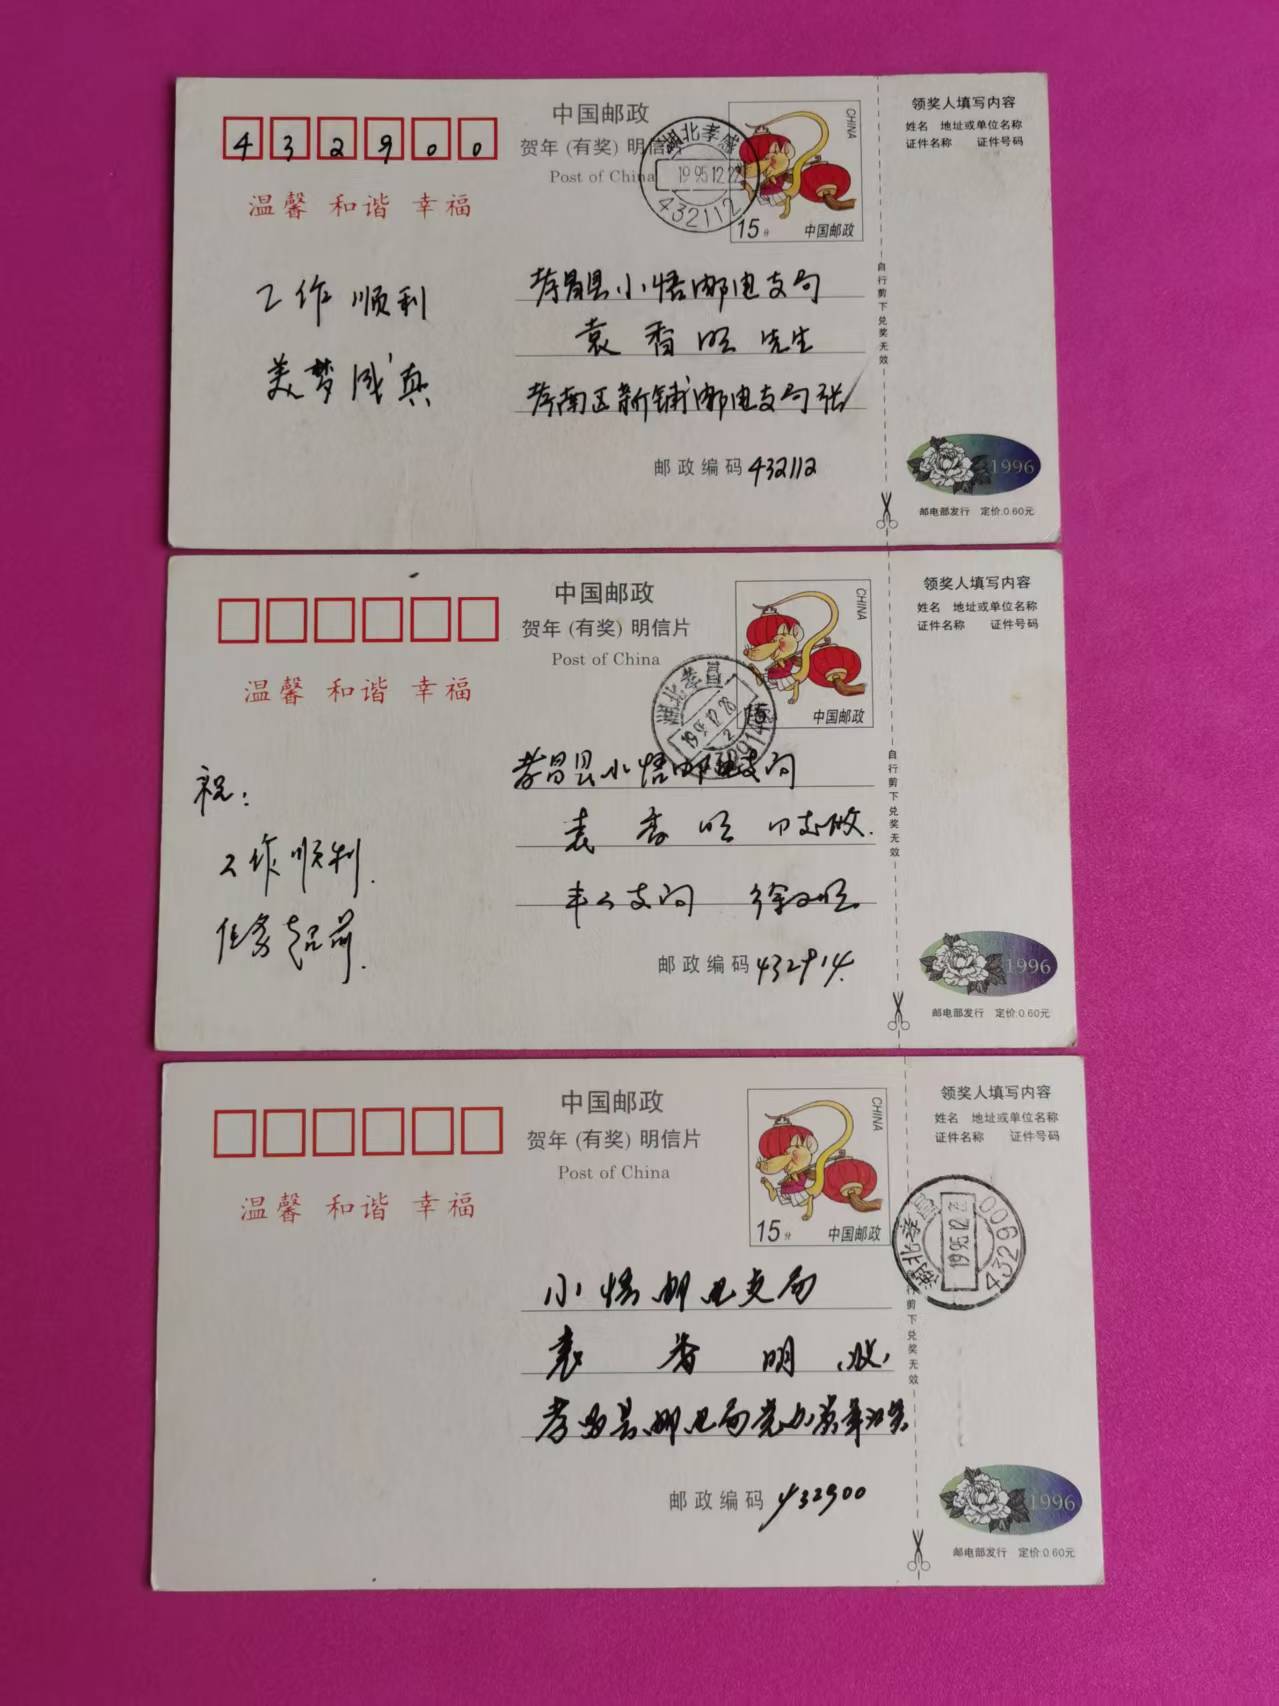 中国邮政
贺年(有奖)明信片
Post of China
432900
温馨 和谐 幸福
湖北孝感
1995.12.22
432112
CHINA
15分 中国邮政
领奖人填写内容
姓名 地址或单位名称
证件名称 证件号码
工作顺利
美梦成真
孝昌县小悟邮电支局
袁香明 先生
孝南区新铺邮电支局张
邮政编码 432112
自行剪下兑奖无效
1996
邮电部发行 定价:0.60元
中国邮政
贺年(有奖)明信片
Post of China
温馨 和谐 幸福
湖北孝昌
1995.12.28
CHINA
中国邮政
领奖人填写内容
姓名 地址或单位名称
证件名称 证件号码
祝:
工作顺利.
任务超前.
孝昌县小悟邮电支局
袁香明 同志收.
丰山支局
邮政编码 432914.
自行剪下兑奖无效
1996
邮电部发行 定价:0.60元
中国邮政
贺年(有奖)明信片
Post of China
温馨 和谐 幸福
CHINA
15分 中国邮政
领奖人填写内容
姓名 地址或单位名称
证件名称 证件号码
湖北孝昌
1995.12
432900
小悟邮电支局
袁香明 收
孝昌县邮电局党办
邮政编码 432900
剪下兑奖无效
1996
邮电部发行 定价:0.60元